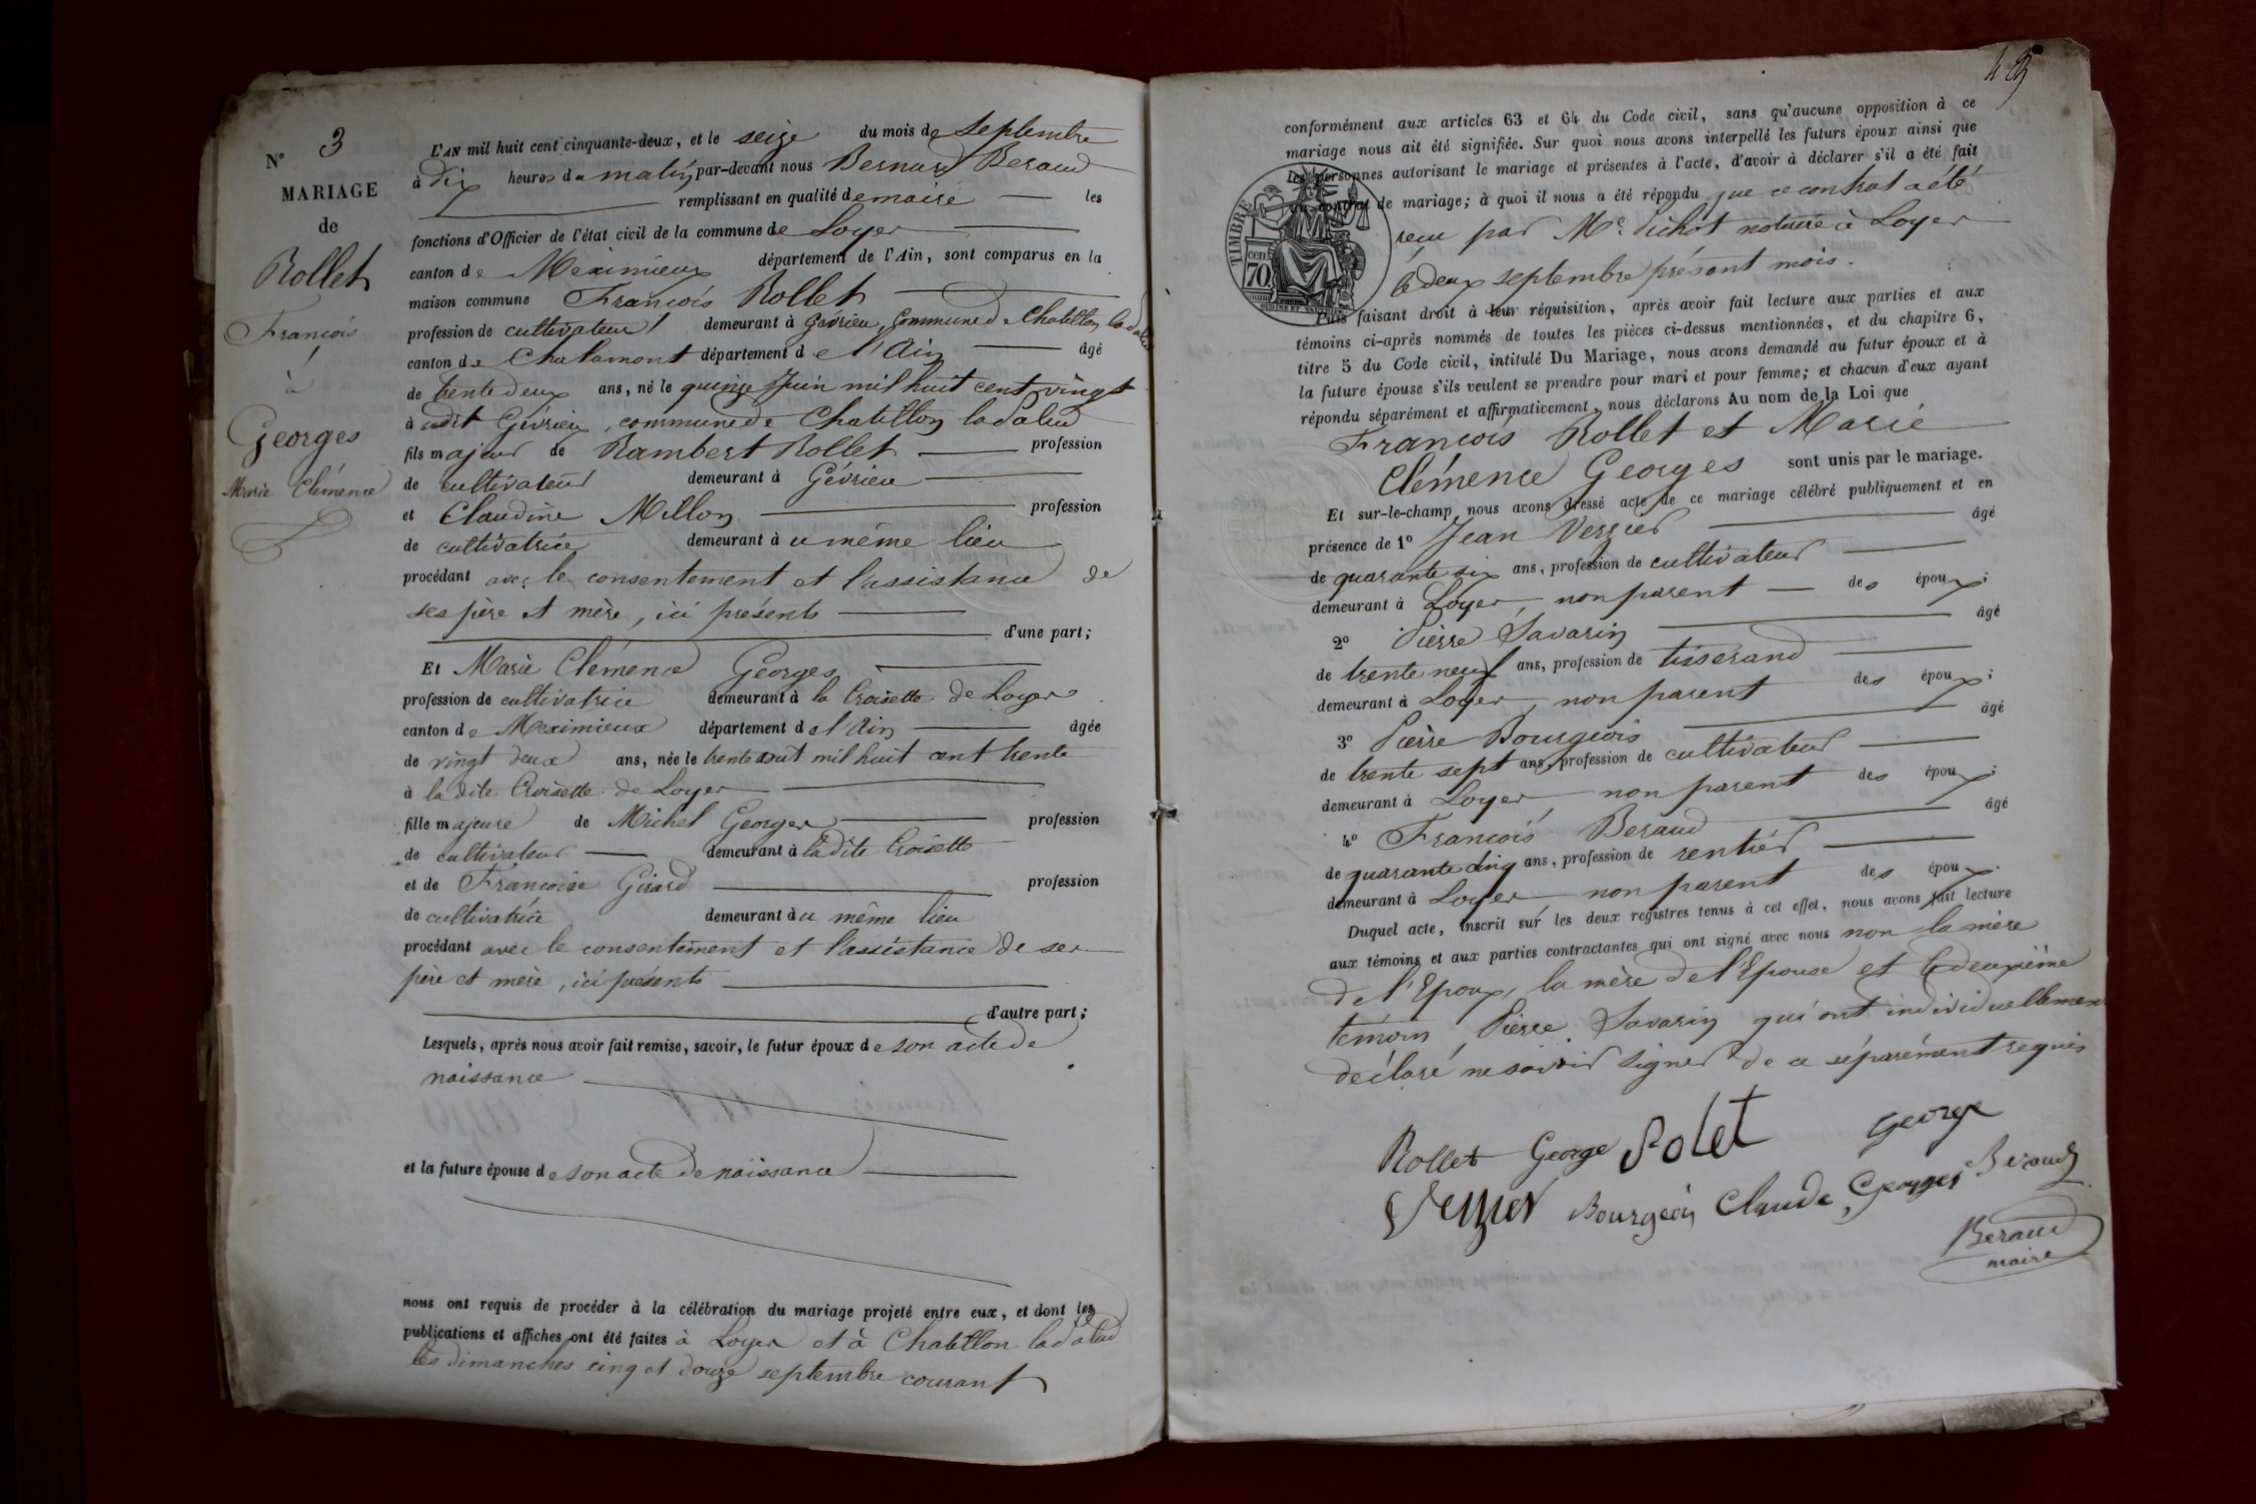 N° 3
MARIAGE
de
Rollet
François
à
Georges
Marie Clémence
L'AN mil huit cent cinquante-deux, et le seize du mois de septembre
à dix heures du matin, par-devant nous Bernard Beraud
remplissant en qualité de maire les
fonctions d'Officier de l'état civil de la commune de Loyer
canton de Meximieux département de l'Ain, sont comparus en la
maison commune François Rollet
profession de cultivateur demeurant à Gévrieu, commune de Chatillon la Palud
canton de Chalamont département de l'Ain âgé
de trente deux ans, né le quinze Juin mil huit cent vingt
à udit Gévrieu, commune de Chatillon la Palud
fils majeur de Rambert Rollet profession
de cultivateur demeurant à Gévrieu
et Claudine Millon profession
de cultivatrice demeurant à u même lieu
procédant avec le consentement et l'assistance de
ses père et mère, ici présents
d'une part;
Et Marie Clémence Georges
profession de cultivatrice demeurant à la Croisette de Loyer
canton de Meximieux département de l'Ain âgée
de vingt deux ans, née le trente aout mil huit cent trente
à la dite Croisette de Loyer
fille majeure de Michel Georges profession
de cultivateur demeurant à la dite Croisette
et de Françoise Girard profession
de cultivatrice demeurant à u même lieu
procédant avec le consentement et l'assistance de ses
père et mère, ici présents
d'autre part;
Lesquels, après nous avoir fait remise, savoir, le futur époux de son acte de
naissance
et la future épouse de son acte de naissance
nous ont requis de procéder à la célébration du mariage projeté entre eux, et dont les
publications et affiches ont été faites à Loyer et à Chatillon la Palud
les dimanches cinq et douze septembre courant
conformément aux articles 63 et 64 du Code civil, sans qu'aucune opposition à ce
mariage nous ait été signifiée. Sur quoi nous avons interpellé les futurs époux ainsi que
les personnes autorisant le mariage et présentes à l'acte, d'avoir à déclarer s'il a été fait
un contrat de mariage; à quoi il nous a été répondu que ce contrat a été
reçu par Me Pichot notaire à Loyer
le deux septembre présent mois.
TIMBRE
70 cen
Puis faisant droit à leur réquisition, après avoir fait lecture aux parties et aux
témoins ci-après nommés de toutes les pièces ci-dessus mentionnées, et du chapitre 6,
titre 5 du Code civil, intitulé Du Mariage, nous avons demandé au futur époux et à
la future épouse s'ils veulent se prendre pour mari et pour femme; et chacun d'eux ayant
répondu séparément et affirmativement, nous déclarons Au nom de la Loi que
François Rollet et Marie
Clémence Georges sont unis par le mariage.
Et sur-le-champ nous avons dressé acte de ce mariage célébré publiquement et en
présence de 1° Jean Verzier âgé
de quarante six ans, profession de cultivateur
demeurant à Loyer, non parent des époux;
2° Pierre Savarin âgé
de trente neuf ans, profession de tisserand
demeurant à Loyer, non parent des époux;
3° Pierre Bourgeois âgé
de trente sept ans, profession de cultivateur
demeurant à Loyer, non parent des époux;
4° François Beraud âgé
de quarante cinq ans, profession de rentier
demeurant à Loyer, non parent des époux.
Duquel acte, inscrit sur les deux registres tenus à cet effet, nous avons fait lecture
aux témoins et aux parties contractantes qui ont signé avec nous non la mère
de l'Epoux, la mère de l'Epouse et le deuxième
témoin, Pierre Savarin qui ont individuellement
déclaré ne savoir signer de ce séparément requis
Rollet George Rolet George
Verzier Bourgeois Claude, Georges Beraud
Beraud
maire